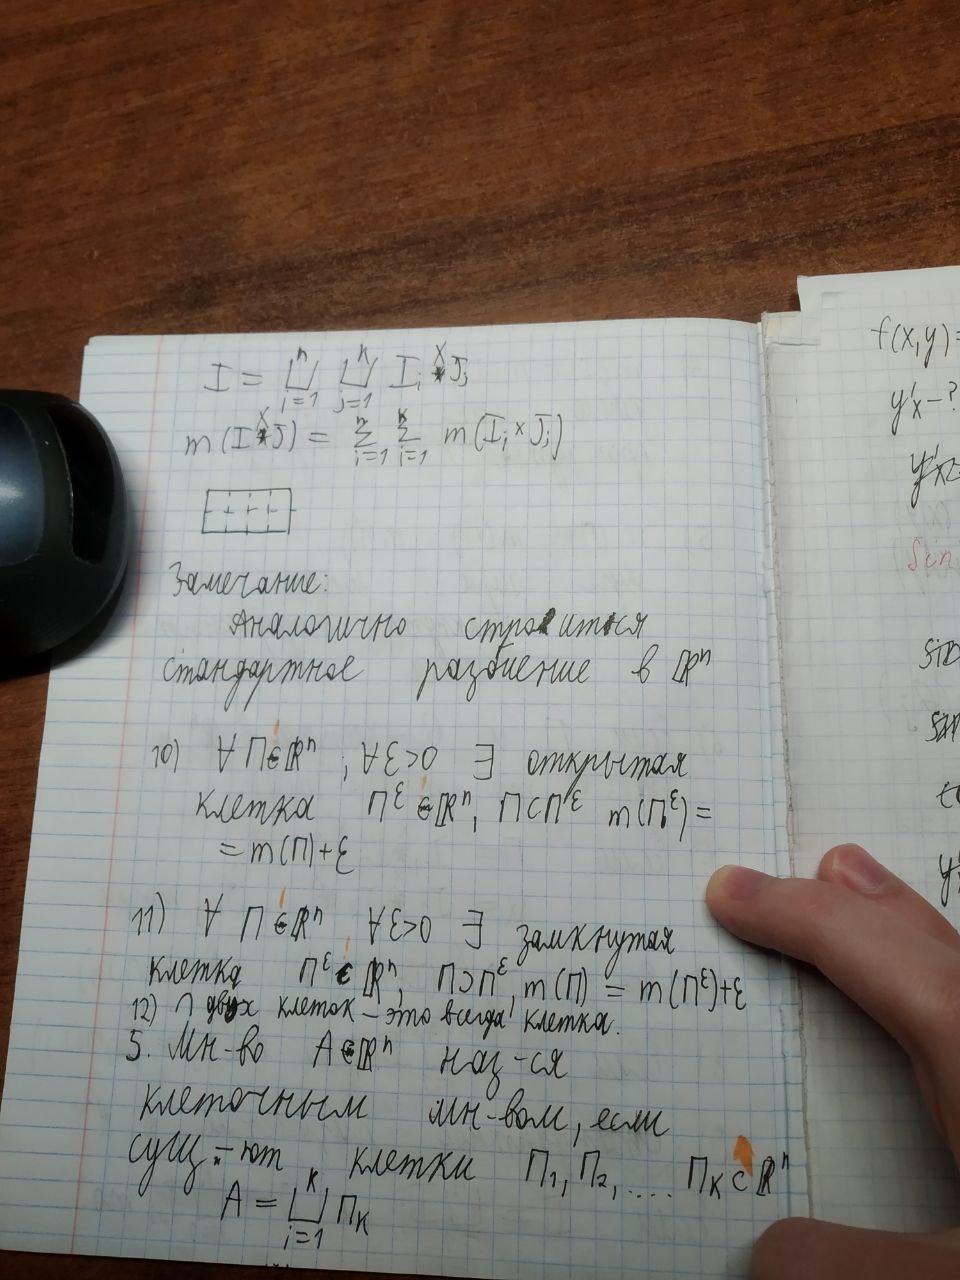 I = ⊔ⁿᵢ₌₁ ⊔ᵏⱼ₌₁ Iᵢ × Jⱼ
m(I × J) = Σⁿᵢ₌₁ Σᵏᵢ₌₁ m(Iᵢ × Jⱼ)
Замечание:
Аналогично строится
стандартное разбиение в ℝⁿ
10) ∀ П ⊂ ℝⁿ, ∀ε>0 ∃ открытая
клетка Пᵋ ⊂ ℝⁿ, П⊂Пᵋ m(Пᵋ) =
= m(П)+ε
11) ∀ П ⊂ ℝⁿ ∀ε>0 ∃ замкнутая
клетка Пᵋ ⊂ ℝⁿ, П⊃Пᵋ, m(П) = m(Пᵋ)+ε
12) ∩ двух клеток – это всегда клетка.
5. Мн-во A⊂ℝⁿ наз-ся
клеточным мн-вом, если
сущ-ют клетки П₁, П₂, .... Пₖ ⊂ ℝⁿ
A = ⊔ᵏᵢ₌₁ Пₖ
f(x,y)=
y'x – ?
y'x=
Sin